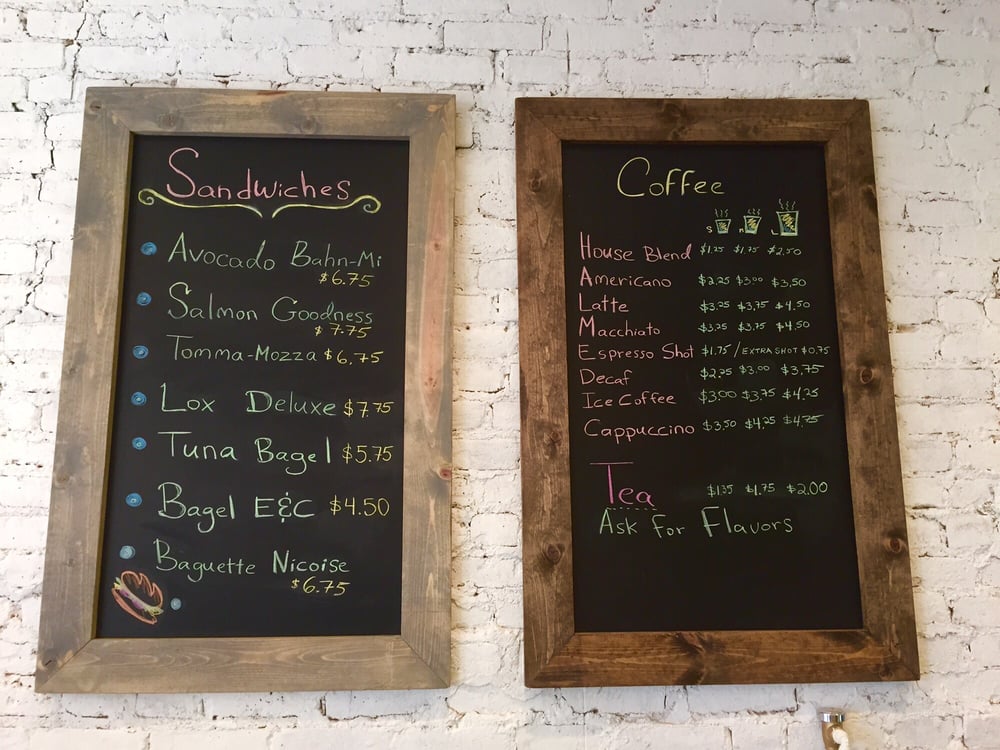 Sandwiches
Avocado Bahn-Mi
$6.75
Salmon Goodness
$7.75
Tomma-Mozza $6.75
Lox Deluxe $7.75
Tuna Bagel $5.75
Bagel E&C $4.50
Baguette Nicoise
$6.75
Coffee
S M L
House Blend $1.25 $1.75 $2.50
Americano $2.25 $3.00 $3.50
Latte $3.25 $3.75 $4.50
Macchiato $3.25 $3.75 $4.50
Espresso Shot $1.75 / EXTRA SHOT $0.75
Decaf $2.25 $3.00 $3.75
Ice Coffee $3.00 $3.75 $4.25
Cappuccino $3.50 $4.25 $4.75
Tea $1.35 $1.75 $2.00
Ask for Flavors